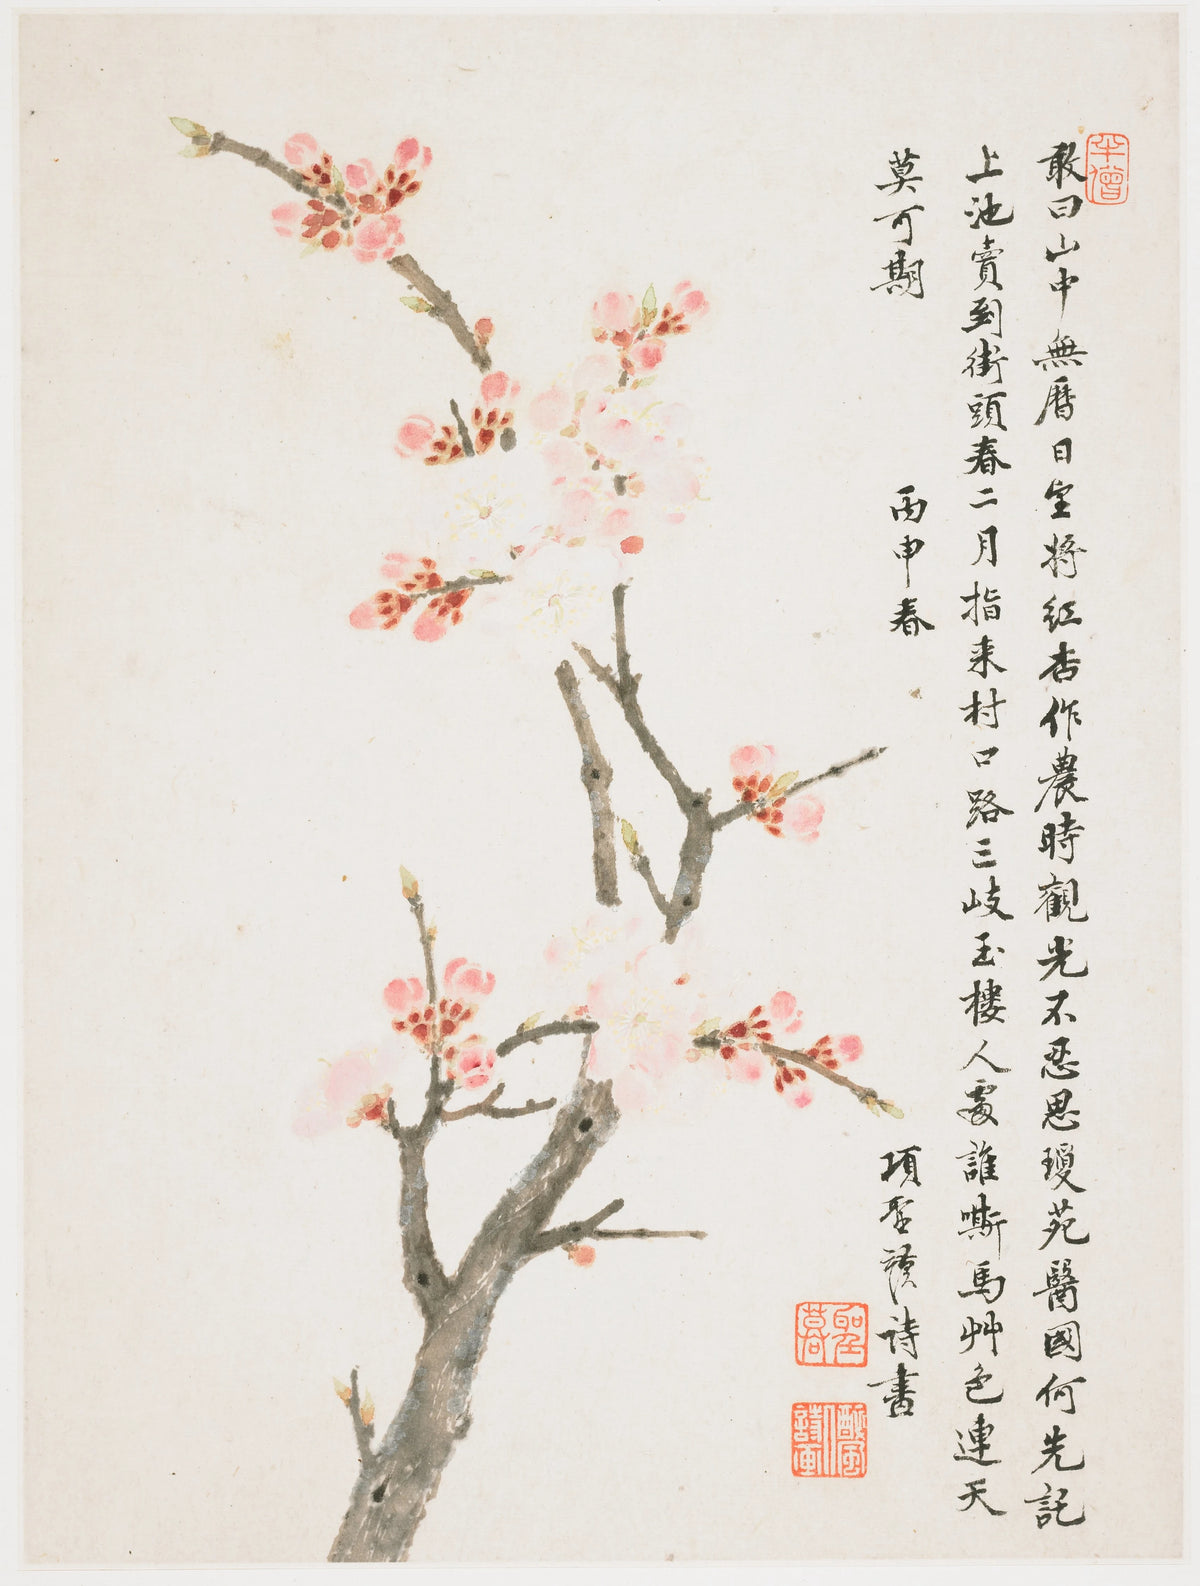 敢曰山中無曆日宜將紅杏作農時觀光不忍思瓊苑醫國何先託
上池賣到街頭春二月指来村口路三岐玉樓人處誰嘶馬艸色連天
莫可期
丙申春
項聖謨詩書